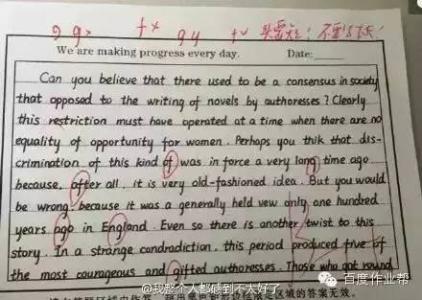 g gx fx gy fv
We are making progress every day. Date:
Can you believe that there used to be a consensus in society
that opposed to the writing of novels by authoresses? Clearly
this restriction must have operated at a time when there are no
equality of opportunity for women. Perhaps you thik that dis-
crimination of this kind of was in force a very long time ago
because, after all, it is very old-fashioned idea. But you would
be wrong, because it was a generally held vew only one hundred
years ago in England. Even so there is another twist to this
story. In a strange condradiction, this period produced five of
the most courageous and gifted authoresses. Those who got round
@我整个人都感到不太好了
百度作业帮
区域的答案无效。